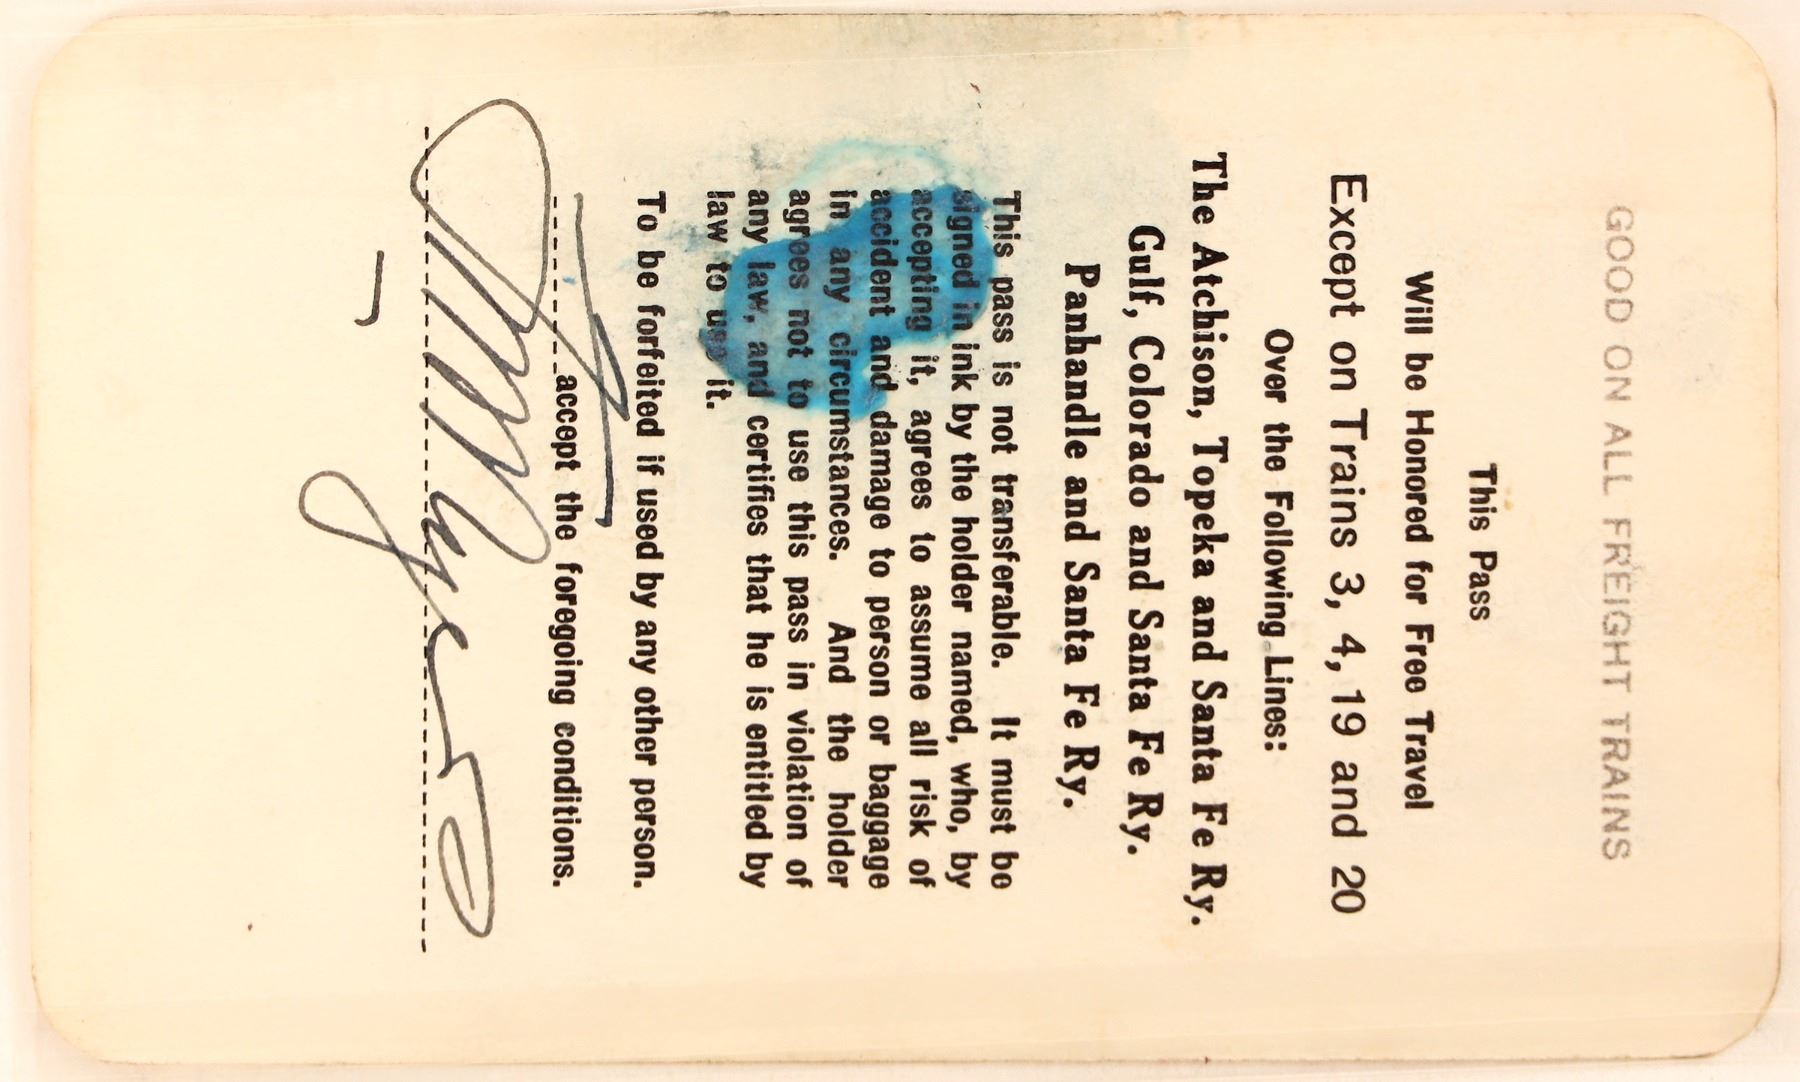 GOOD ON ALL FREIGHT TRAINS
This Pass
Will be Honored for Free Travel
Except on Trains 3, 4, 19 and 20
Over the Following Lines:
The Atchison, Topeka and Santa Fe Ry.
Gulf, Colorado and Santa Fe Ry.
Panhandle and Santa Fe Ry.
This pass is not transferable. It must be
signed in ink by the holder named, who, by
accepting it, agrees to assume all risk of
accident and damage to person or baggage
in any circumstances. And the holder
agrees not to use this pass in violation of
any law, and certifies that he is entitled by
law to use it.
To be forfeited if used by any other person.
I accept the foregoing conditions.